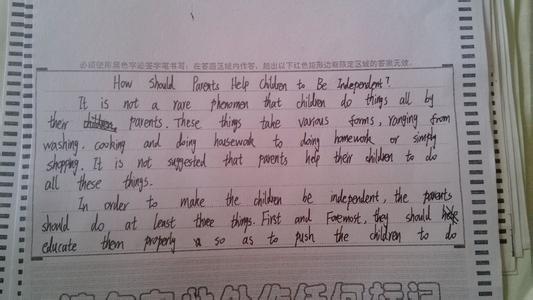 必须使用黑色字迹签字笔书写，在答题区域内作答，超出以下红色矩形边框限定区域的答案无效。
How Should Parents Help Children to Be Independent?
It is not a rare phenomen that children do things all by
their parents. These things take various forms, ranging from
washing, cooking and doing housework to doing homework or simply
shopping. It is not suggested that parents help their children to do
all these things.
In order to make the children be independent, the parents
should do at least three things. First and Foremost, they should
educate them properly so as to push the children to do